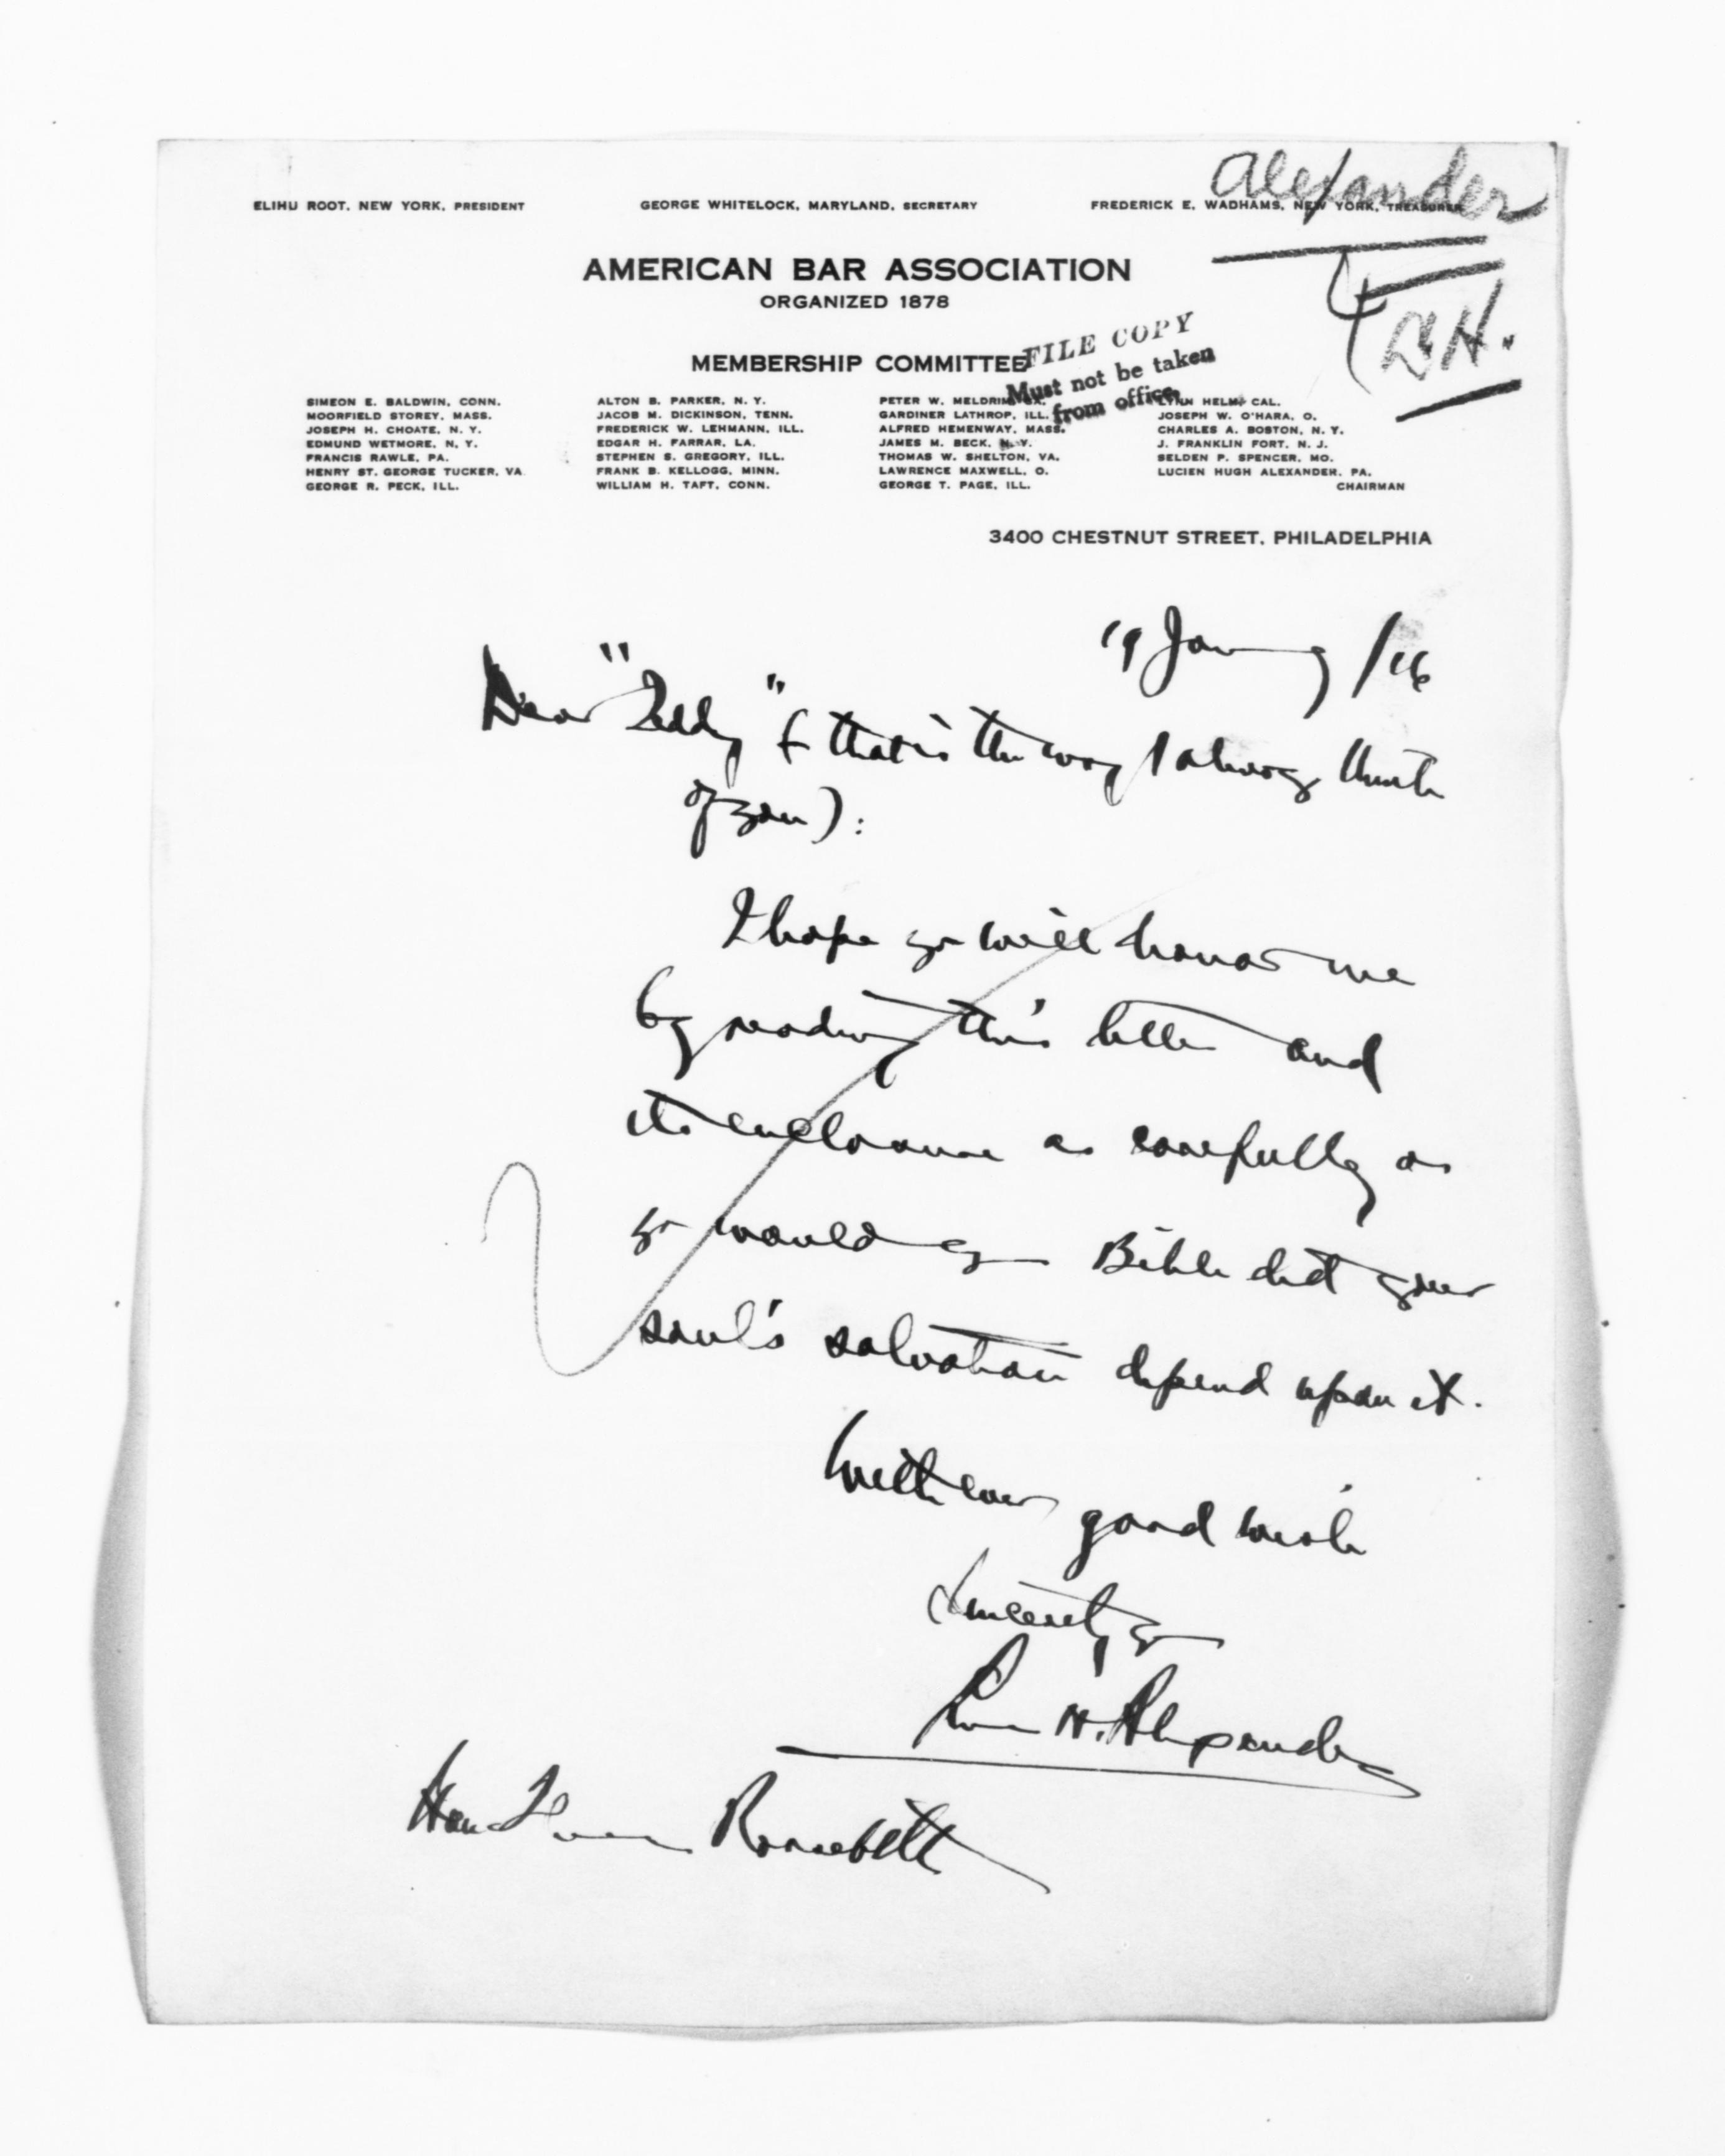 Alexander
ELIHU ROOT, NEW YORK, PRESIDENT GEORGE WHITELOCK, MARYLAND, SECRETARY FREDERICK E. WADHAMS, NEW YORK, TREASURER
AMERICAN BAR ASSOCIATION
ORGANIZED 1878
FILE COPY
Must not be taken
from office
MEMBERSHIP COMMITTEE
SIMEON E. BALDWIN, CONN. ALTON B. PARKER, N. Y. PETER W. MELDRIM, GA. LYNN HELM, CAL.
MOORFIELD STOREY, MASS. JACOB M. DICKINSON, TENN. GARDINER LATHROP, ILL. JOSEPH W. O'HARA, O.
JOSEPH H. CHOATE, N. Y. FREDERICK W. LEHMANN, ILL. ALFRED HEMENWAY, MASS. CHARLES A. BOSTON, N. Y.
EDMUND WETMORE, N. Y. EDGAR H. FARRAR, LA. JAMES M. BECK, N. Y. J. FRANKLIN FORT, N. J.
FRANCIS RAWLE, PA. STEPHEN S. GREGORY, ILL. THOMAS W. SHELTON, VA. SELDEN P. SPENCER, MO.
HENRY ST. GEORGE TUCKER, VA. FRANK B. KELLOGG, MINN. LAWRENCE MAXWELL, O. LUCIEN HUGH ALEXANDER, PA.
GEORGE R. PECK, ILL. WILLIAM H. TAFT, CONN. GEORGE T. PAGE, ILL. CHAIRMAN
3400 CHESTNUT STREET, PHILADELPHIA
19 January /16
Dear "Teddy" (that is the way I always think
of you):
I hope you will honor me
by reading this letter and
its enclosure as carefully as
you would your Bible did your
soul's salvation depend upon it.
With every good wish
Sincerely yours
Lucien H. Alexander
Hon. Theodore Roosevelt